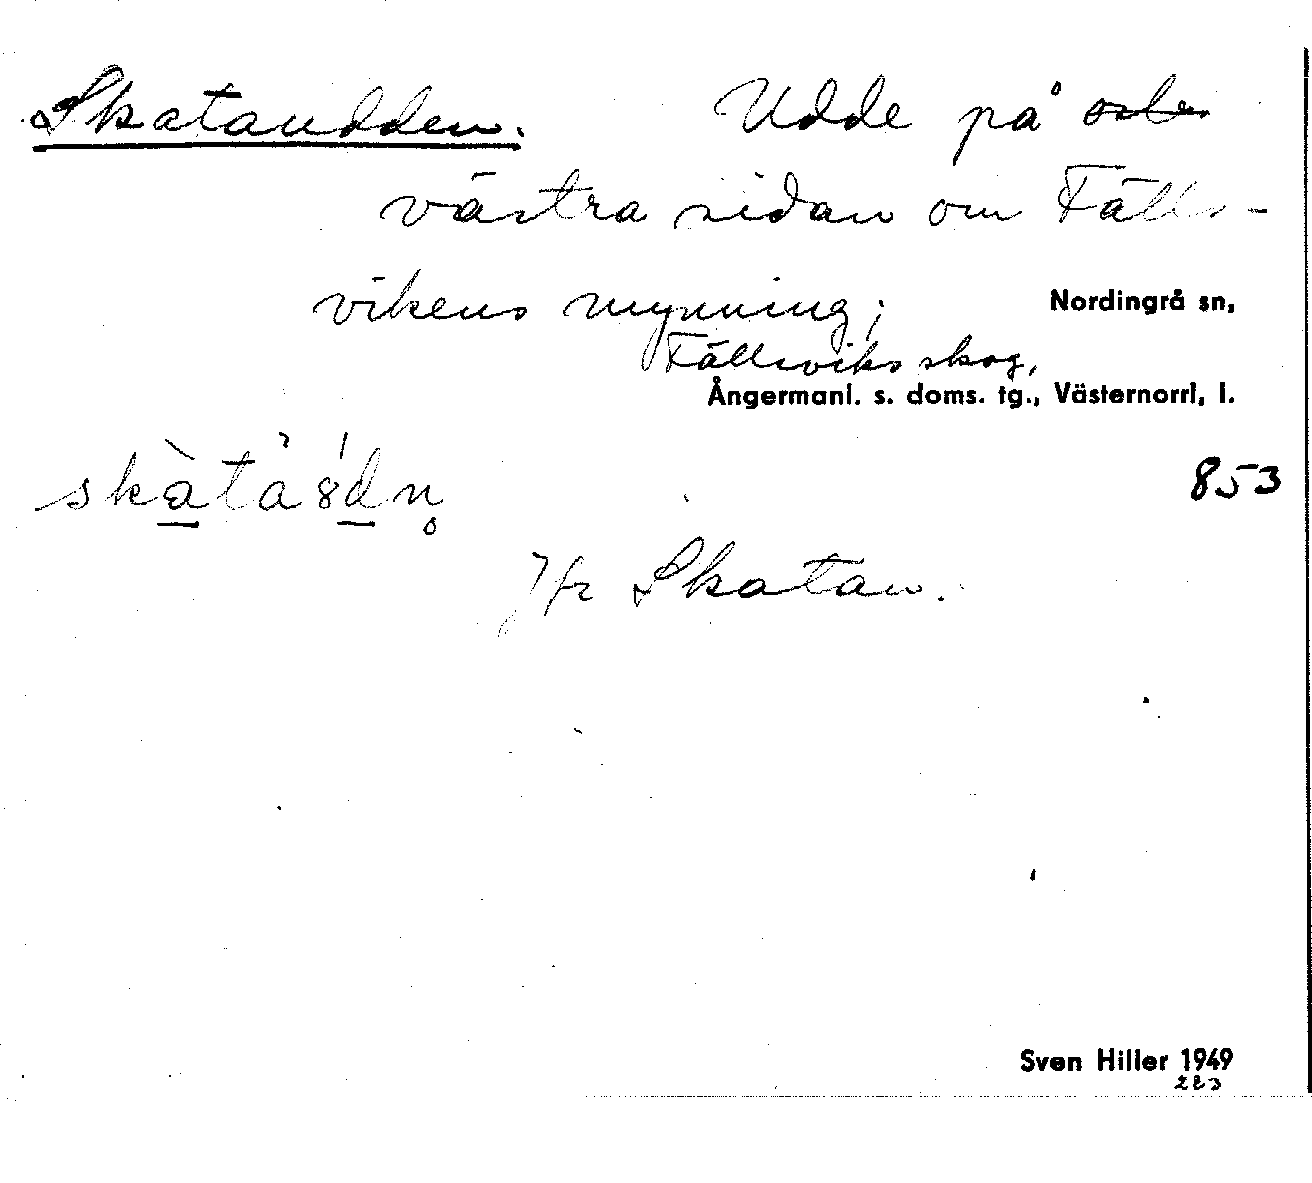 Skataudden. Udde på
västra sidan om Fälls-
vikens mynning; Nordingrå sn,
Fällsviks skog,
Ångermanl. s. doms. tg., Västernorrl. l.
853
Jfr Skatan.
Sven Hiller 1949